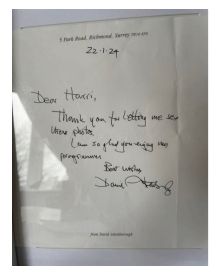 5 Park Road, Richmond, Surrey
22-1-24
Dear Harri,
Thank you for letting me see
these photos.
I am so glad you enjoy my
programmes
Best wishes
David
from David Attenborough